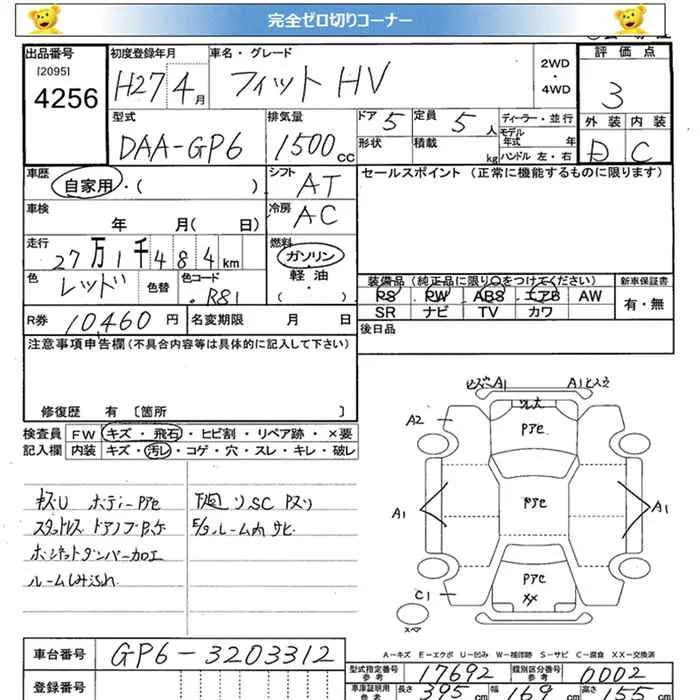 完全ゼロ切りコーナー
出品番号 初度登録年月 車名・グレード 2WD・4WD 評価点
[2095]
4256 H27 4月 フィット HV 3
型式 排気量 ドア 5 定員 5人 ディーラー・並行 外装 内装
DAA-GP6 1500cc 形状 積載 kg モデル年式 年 D C
ハンドル 左・右
車歴 シフト AT セールスポイント (正常に機能するものに限ります)
自家用・( )
車検 冷房 AC
年 月( 日)
走行 燃料
27万1千484km ガソリン・軽油・( )
色 レッド 色替 色コード R81 装備品 (純正品に限り○をつけてください) 新車保証書
PS PW ABS エアB AW 有・無
SR ナビ TV カワ
R券 10,460円 名変期限 月 日 後日品
注意事項申告欄(不具合内容等は具体的に記入して下さい)
修復歴 有 [箇所 ]
検査員 FW キズ・飛石・ヒビ割・リペア跡・×要
記入欄 内装 キズ・汚レ・コゲ・穴・スレ・キレ・破レ
キズU ボディーPアセ 下廻リSC Pスリ
スタットレス ドアノブBッケ E/gルーム内サビ
ボンネットダンパー加工
ルームしみ汚れ
A1 A1
A2
Pアセ
A1 Pアセ A1
Pアセ
XX
C1
スペア
A-キズ E-エクボ U-凹み W-補修跡 S-サビ C-腐食 XX-交換済
車台番号 GP6-3203312
型式指定番号参考 17692 類別区分番号参考 0002
登録番号 車庫証明用参考 長さ 395cm 幅 169cm 高さ 155cm